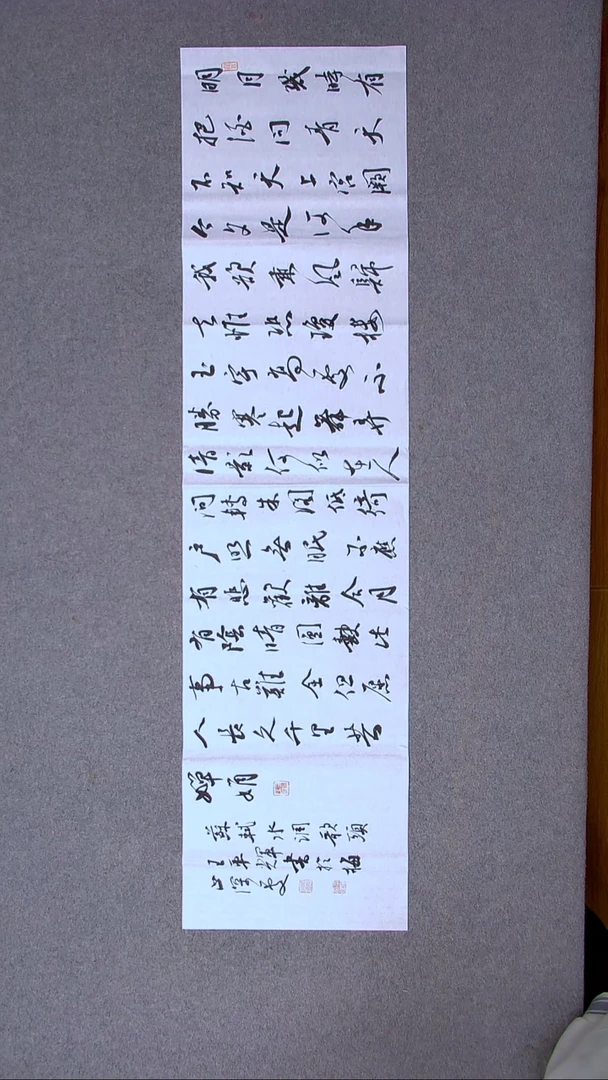 明月幾時有
把酒問青天
不知天上宮闕
今夕是何年
我欲乘風歸
去惟恐瓊樓
玉宇高處不
勝寒起舞弄
清影何似在人
間轉朱閣低綺
戶照無眠不應
有悲歡離合月
有陰晴圓缺此
事古難全但願
人長久千里共
嬋娟
蘇軾水調歌頭
王輝書於梅
山深處